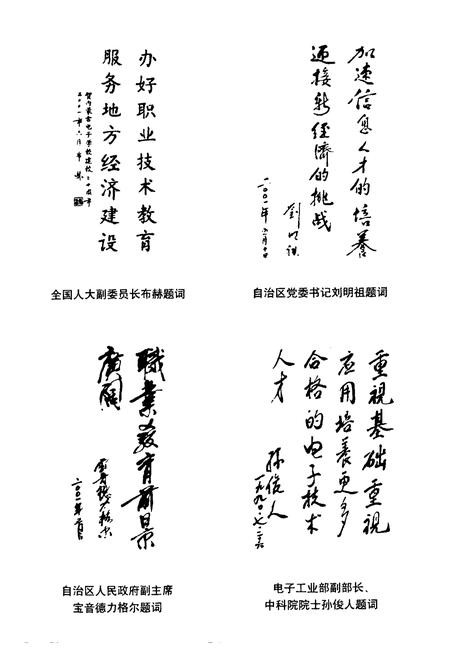 办好职业技术教育
服务地方经济建设
贺内蒙古电子学校建校二十周年
二〇〇一年六月 布赫
全国人大副委员长布赫题词
加速信息人才的培养
迎接新经济的挑战
刘明祖
二〇〇一年六月十日
自治区党委书记刘明祖题词
職業教育前景
廣闊
二〇〇一年六月
自治区人民政府副主席
宝音德力格尔题词
重視基础重視
应用培养更多
合格的电子技术
人才
孙俊人
一九九〇·七·二六
电子工业部副部长、
中科院院士孙俊人题词